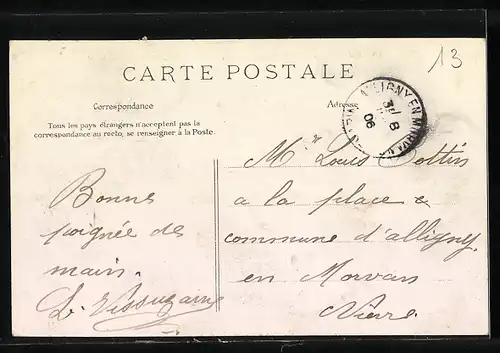 13
CARTE POSTALE
Correspondance
Adresse
Tous les pays étrangers n'acceptent pas la
correspondance au recto, se renseigner à la Poste.
ALLIGNY EN MORVAN
31 8
06
Mr Louis
Bonne
poignée des
main.
a la place
commune d'alligny
en Morvan
Nièvre